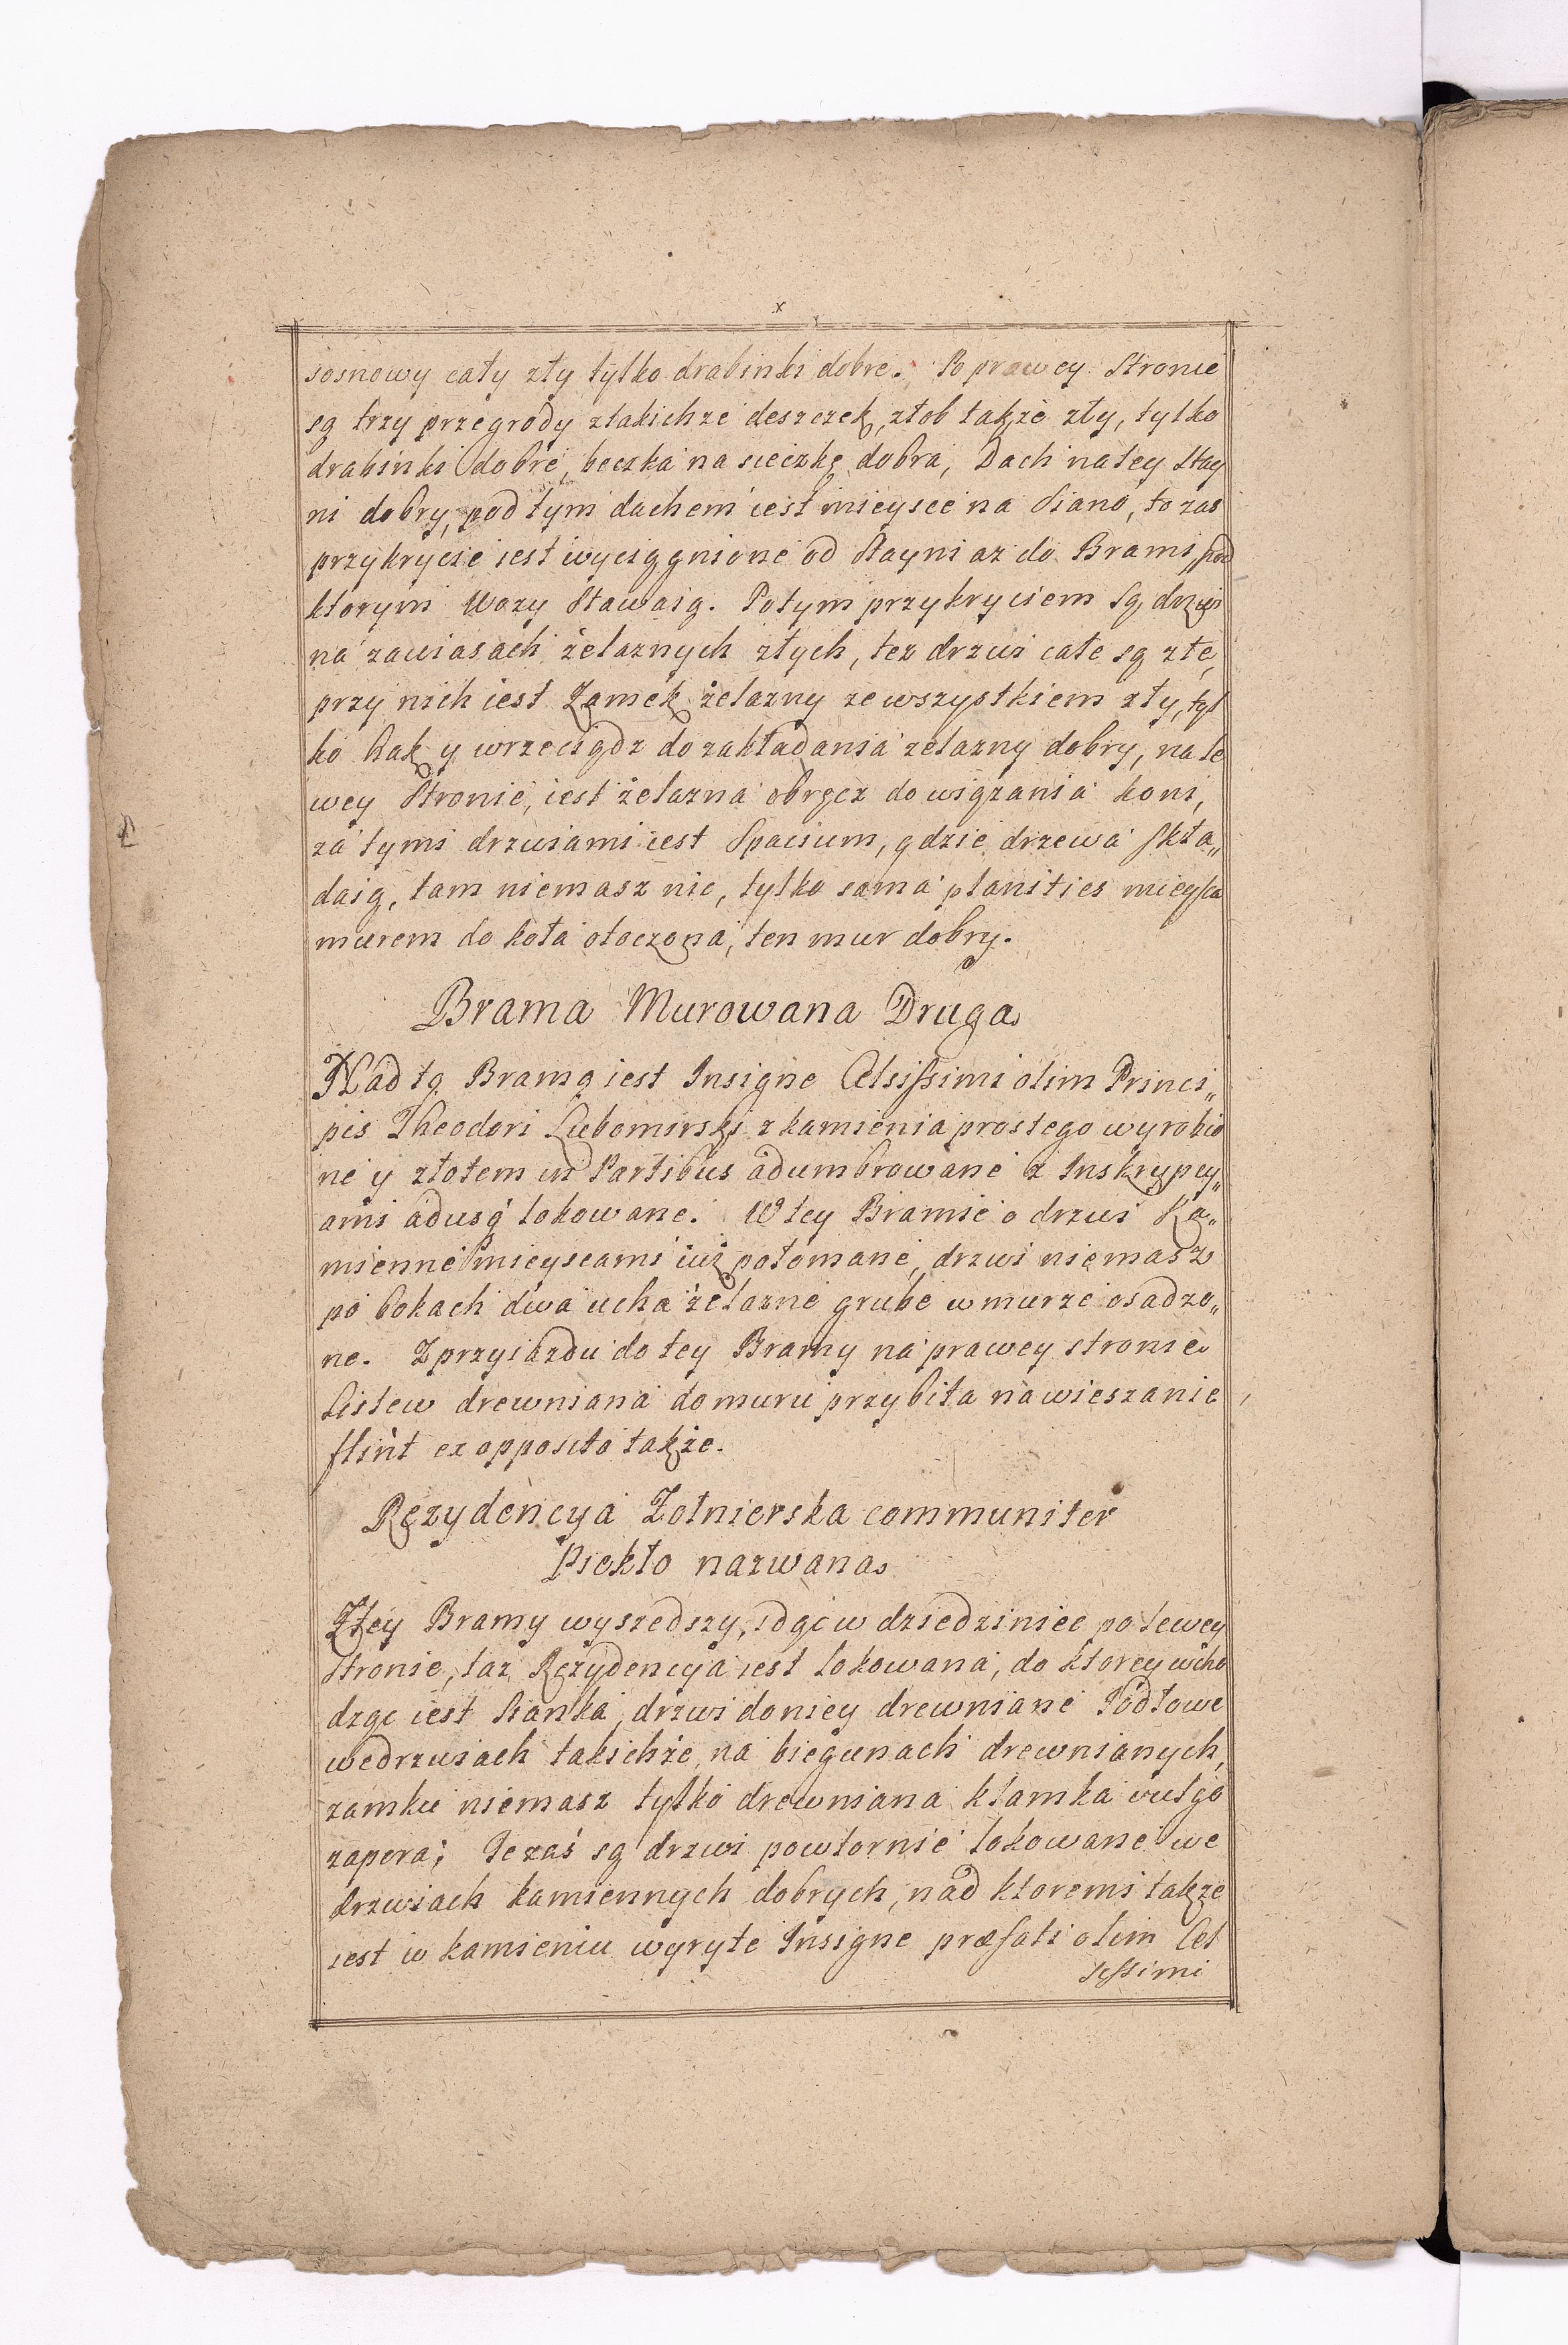 sosnowy cały zły tylko drabinki dobre. Po prawey Stronie
są trzy przegrody ztakichże deszczek, złob także zły, tylko
drabinki dobre, beczka na sieczkę dobra, Dach na tey Stay
ni dobry, pod tym dachem iest mieysce na Siano, to zas
przykrycie iest wyciągnione od Stayni az do Brami, pod
ktorym Wozy Stawaią. Potym przykryciem Są drzwi
na zawiasach żelaznych złych, tez drzwi całe są złe,
przy nich iest Zamek żelazny ze wszystkiem zły, tyl
ko Hak y wrzeciądz do zakładania żelazny dobry, na le
wey Stronie, iest żelazna obręcz do wiązania koni,
za tymi drzwiami iest Spacium, gdzie drzewa Skła„
daią, tam niemasz nic, tylko sama planities mieysca
murem do koła otoczona, ten mur dobry.
Brama Murowana Druga
Nad tą Bramą iest Insigne Celsissimi olim Princi„
pis Theodori Lubomirski z kamienia prostego wyrobio
ne y złotem in Partibus adumbrowane z Inskrypcy„
ami adusą lokowane. W tey Bramie o drzwi Ka„
mienne mieyscami iuż połomane, drzwi niemasz
po bokach dwa ucha żelazne grube w murze osadzo„
ne. Z przyiazdu do tey Bramy na prawey stronie
Listew drewniana do muru przybita na wieszanie
flint ex opposito także.
Rezydencya Zołnierska communiter
Piekło nazwana
Ztey Bramy wyszedszy, idąc w dziedziniec po lewey
Stronie, taz Rezydencya iest lokowana, do ktorey wcho
dząc iest Sianka, drzwi do niey drewniane Jodłowe
wedrzwiach takichże, na biegunach drewnianych,
zamku niemasz tylko drewniana klamka vulgo
zapora; Te zaś są drzwi powtornie lokowane we
drzwiach kamiennych dobrych, nad ktoremi także
iest w kamieniu wyryte Insigne præfati olim Cel
sissimi